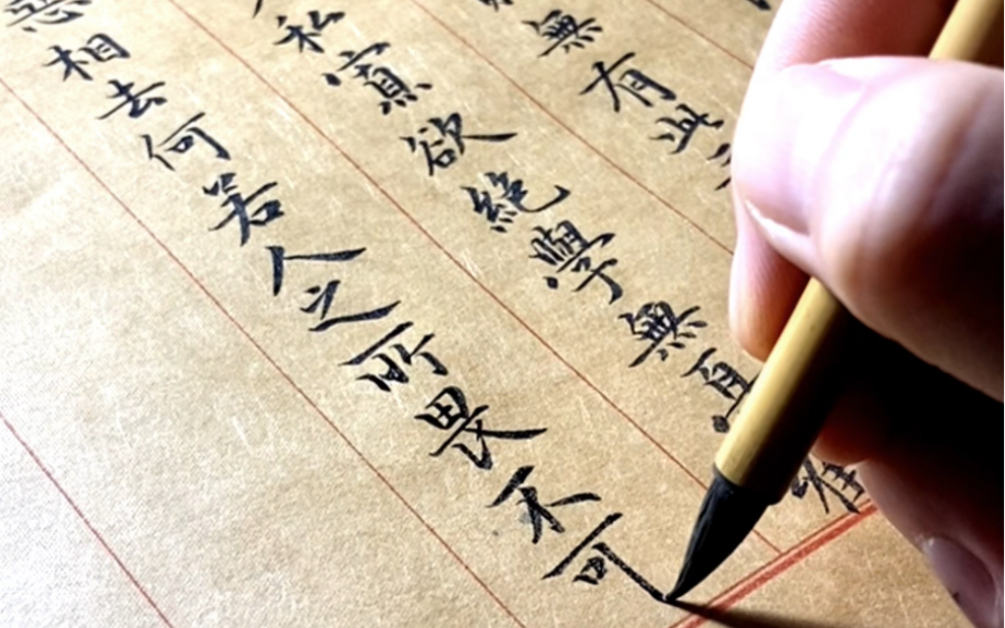 無有此三
私寡欲絕學無憂唯
惡相去何若人之所畏不可